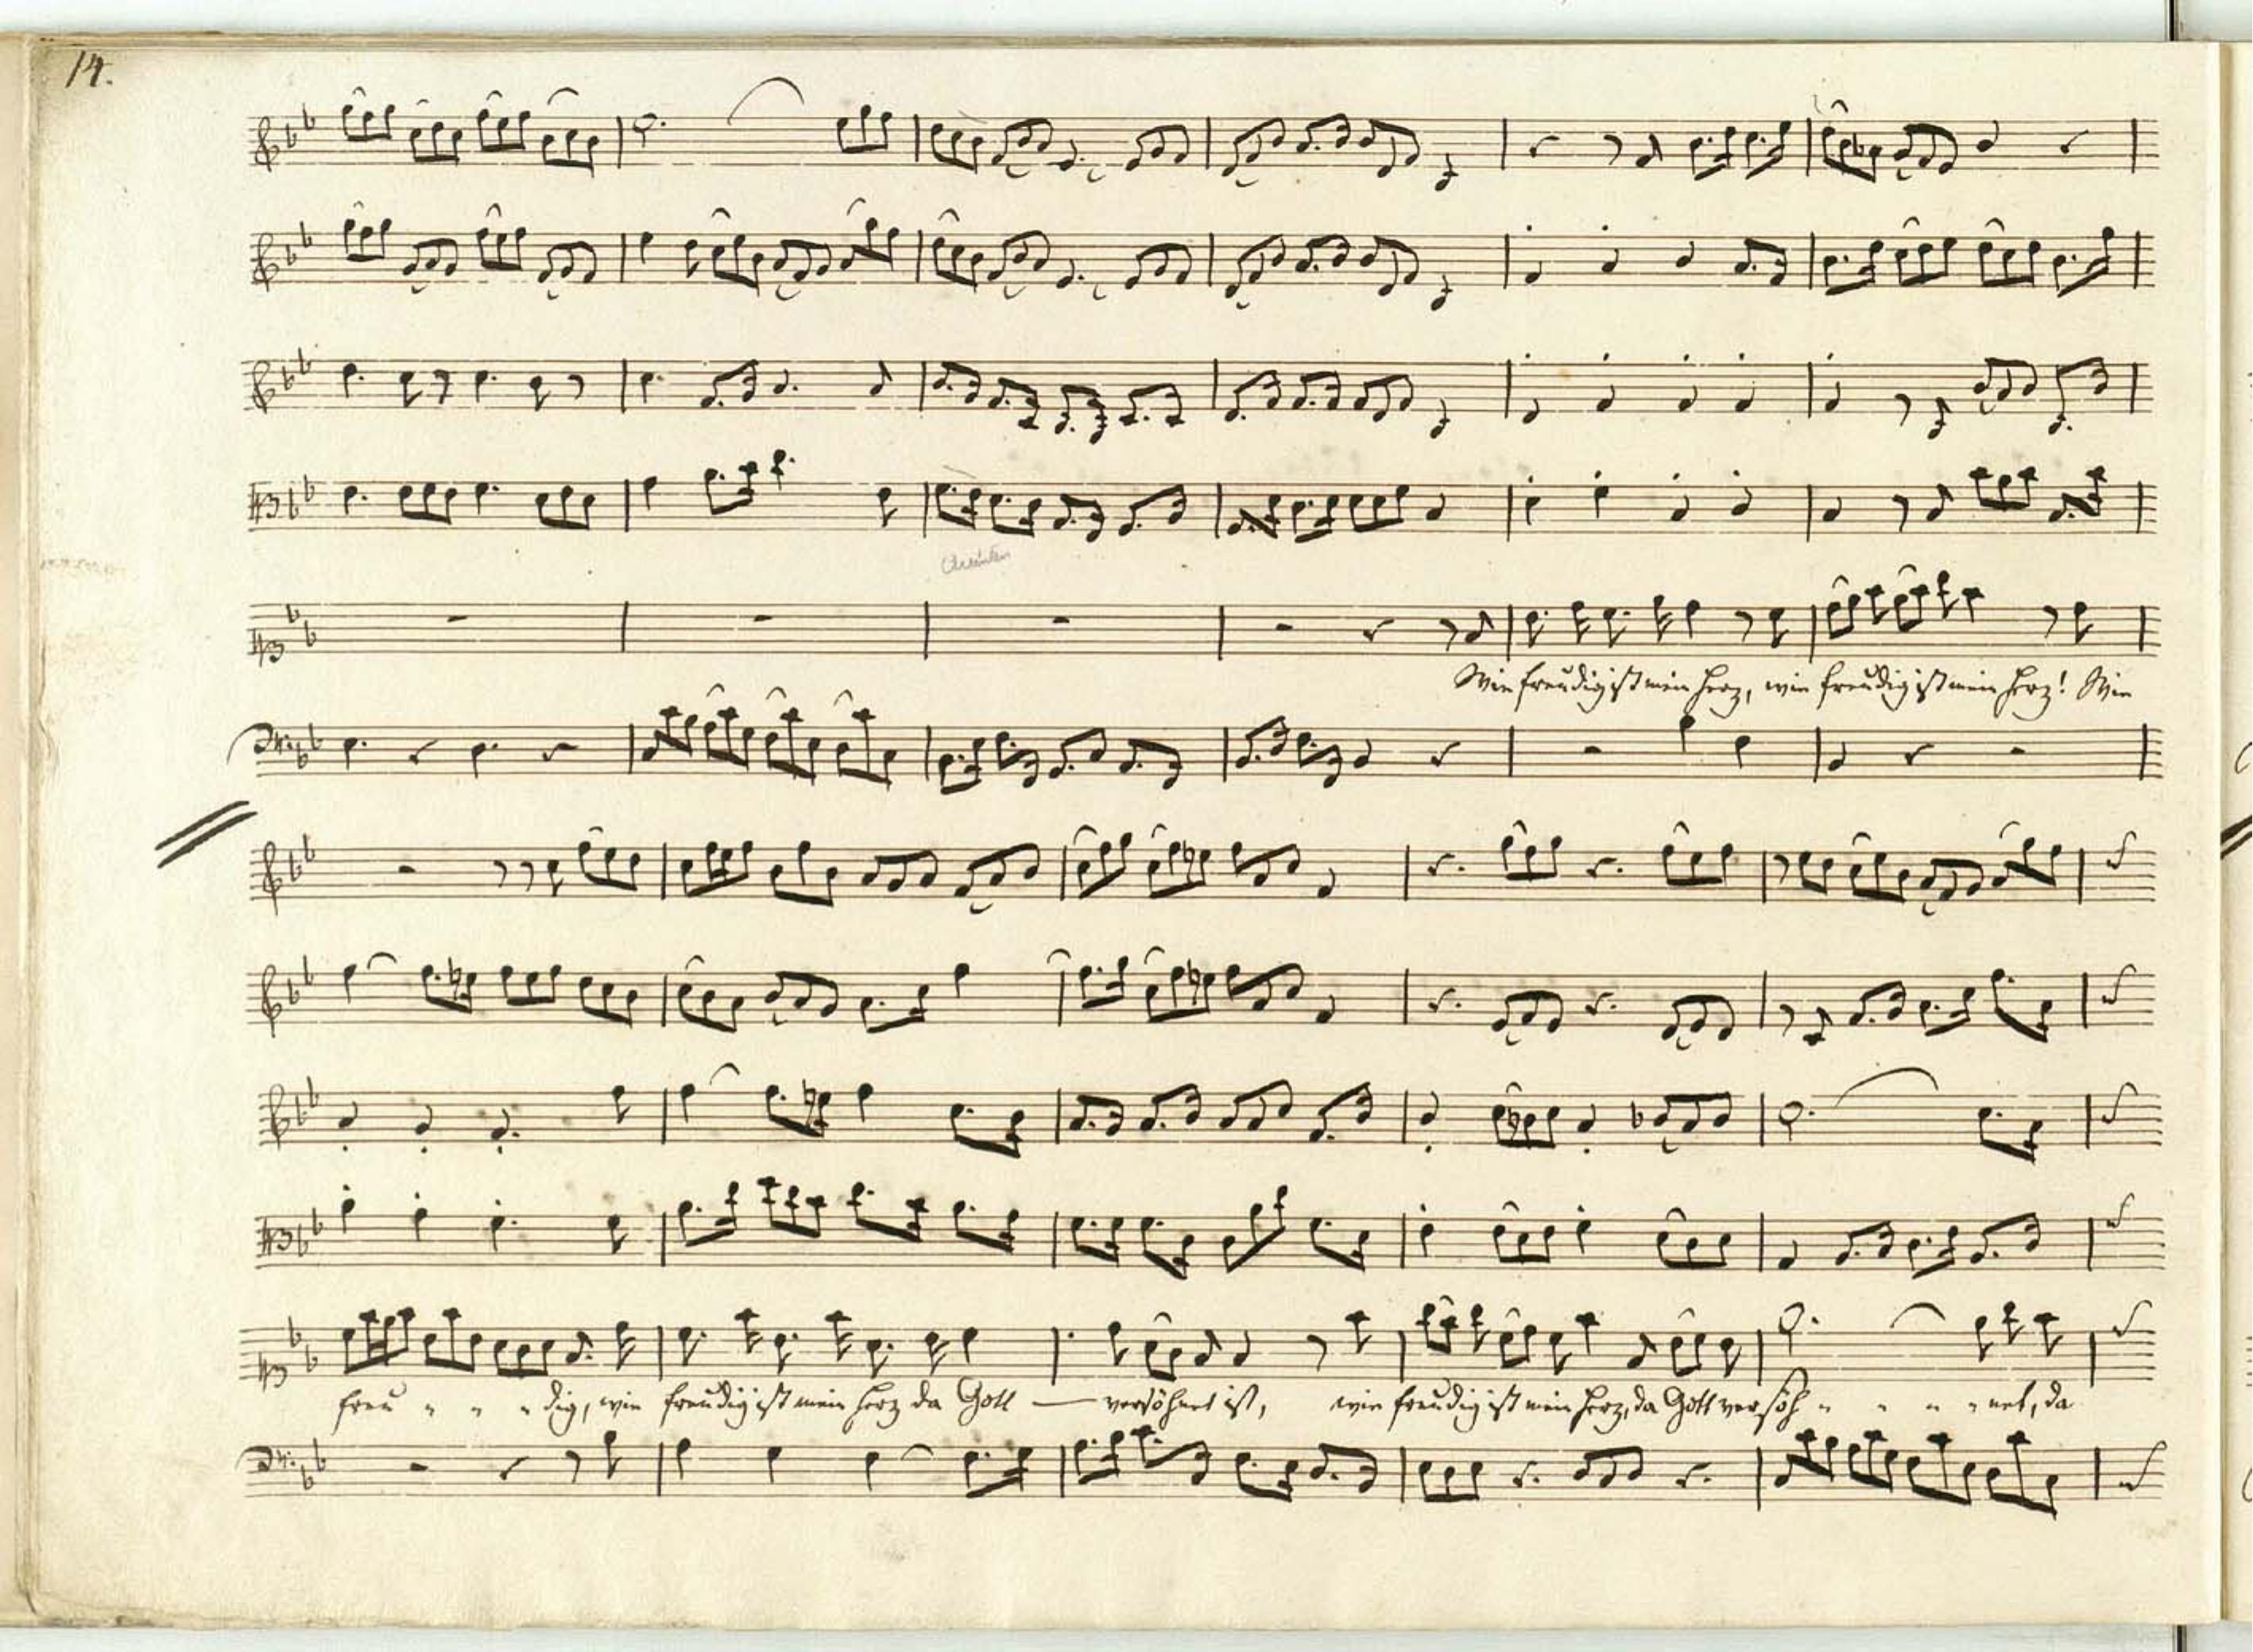 14.
Quinten
Wie freudig ist mein Herz, wie freudig ist mein Herz! Wie
freu - - - dig, wie freudig ist mein Herz da Gott — versöhnet ist, wie freudig ist mein Herz, da Gott versöh - - - - net, da